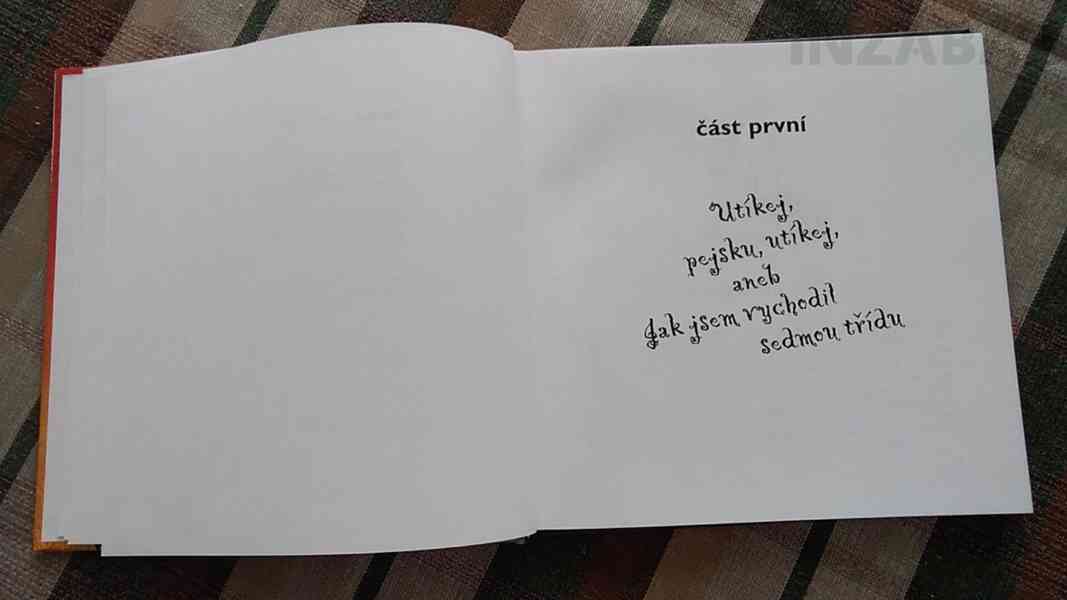 INZAB
část první
Utíkej,
pejsku, utíkej,
aneb
Jak jsem vychodil
sedmou třídu